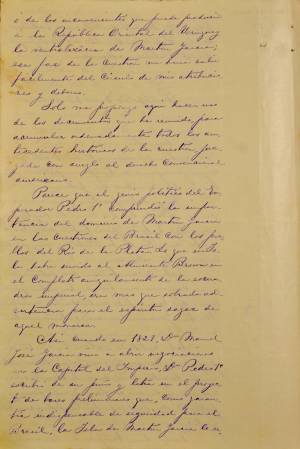 ó de los inconvenientes que puede producir
á la República Oriental del Uruguay
la neutralización de Martin Garcia;
esa faz de la cuestion no hace sub
facilmente del círculo de mis atribucio
nes y deberes.
Solo me propongo aquí hacer uso
de los documentos que he reunido para
acumular ademas todos los an
tecedentes históricos de la cuestion juz
gada con arreglo al derecho convencional
americano.
Parece que el genio politico del Em
perador Pedro 1º comprendió la impor
tancia del dominio de Martin Garcia
en las cuestiones del Brasil con los pue
blos del Rio de la Plata. Lo que
la isla sirvió al Almirante Brown en
el completo aniquilamiento de la escua
dra imperial, era mas que sobrada ad
vertencia para el espíritu sagaz de
aquel monarca.
Asi cuando en 1827, Dn. Manuel
José Garcia vino á abrir negociaciones
en la Capital del Imperio, Dn. Pedro 1º
escribió de su puño y letra en el proyec
to de bases preliminares que, como garan
tia indispensable de seguridad para el
Brasil, la Isla de Martin Garcia